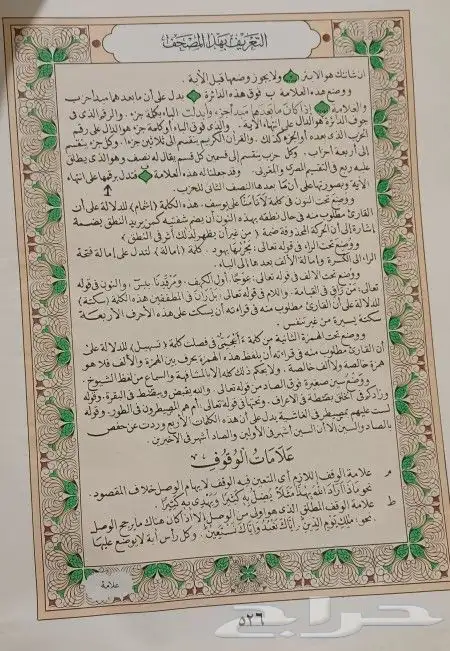 التعريف بهذا المصحف
إن شانئك هو الأبتر ولا يجوز وضعها قبل الآية .
ووضع هذه العلامة ب فوق هذه الدائرة يدل على أن ما بعدها مبدأ حزب
والعلامة إذا كان ما بعدها مبدأ جزء وأبدلت الباء بكلمة جزء . والرقم الذي في
جوف الدائرة هو الدال على انتهاء الآية . والذي فوق الباء أو كلمة جزء هو الدال على رقم
الحزب الذي بعده أو الجزء كذلك . والقرآن الكريم ينقسم إلى ثلاثين جزءا . وكل جزء ينقسم
إلى أربعة أحزاب . وكل حزب ينقسم إلى قسمين كل قسم يقال له نصف وهو الذي يطلق
عليه ربع في التقسيم المصري والمغربي . وقد جعلنا له هذه العلامة فتدل برقمها على انتهاء
الآية وبصورتها على أن ما بعدها النصف الثاني للحزب .
ووضع تحت النون في كلمة لا تأمنا على يوسف . هذه الكلمة (إشمام) للدلالة على أن
القارئ مطلوب منه في حال نطقه بهذه النون أن يضم شفتيه كمن يريد النطق بضمة
إشارة إلى أن الحركة المحذوفة ضمة ( من غير أن يظهر لذلك أثر في النطق )
ووضع تحت الراء في قوله تعالى : مجريها بهود . كلمة ( امالة ) لتدل على إمالة فتحة
الراء إلى الكسرة وإمالة الألف بعدها إلى الياء .
ووضع تحت الالف في قوله تعالى : عوجا . أول الكهف . ومرقدنا بيس . والنون في قوله
تعالى : من راق في القيامة . واللام في قوله تعالى : بل ران في المطففين هذه الكلمة (سكتة)
للدلالة على أن القارئ مطلوب منه في قراءته أن يسكت على هذه الأحرف الأربعة
سكتة يسيرة من غير تنفس .
ووضع تحت الهمزة الثانية من كلمة ءأعجمي في فصلت كلمة ( تسهيل ) للدلالة على
أن القارئ مطلوب منه في قراءته أن يلفظ هذه الهمزة بحرف بين الهمزة والألف فلا هو
همزة خالصة ولا ألف خالصة . ولا يحكم ذلك كله إلا المشافهة والسماع من لفظ الشيوخ .
ووضع سين صغيرة فوق الصاد من قوله تعالى . والله يقبض ويبصط في البقرة . وقوله
وزادكم في الخلق بصطة في الاعراف . وتحتها في قوله تعالى . أم هم المصيطرون في الطور . وقوله
لست عليهم بمصيطر في الغاشية يدل على أن هذه الكلمات الأربع وردت عن حفص
بالصاد والسين إلا أن السين أشهر في الأولين والصاد أشهر في الأخيرين .
علامات الوقوف
م علامة الوقف اللازم أي المتعين فيه الوقف لإيهام الوصل خلاف المقصود .
نحو ماذا أراد الله بهذا مثلا يضل به كثيرا ويهدي به كثيرا .
ط علامة الوقف المطلق الذي هو أولى من الوصل إلا إذا كان هناك ما يرجح الوصل
نحو : ملك يوم الدين . إياك نعبد وإياك نستعين . وكل رأس آية لا يوضع عليها
علامة
٥٢٦
حراج